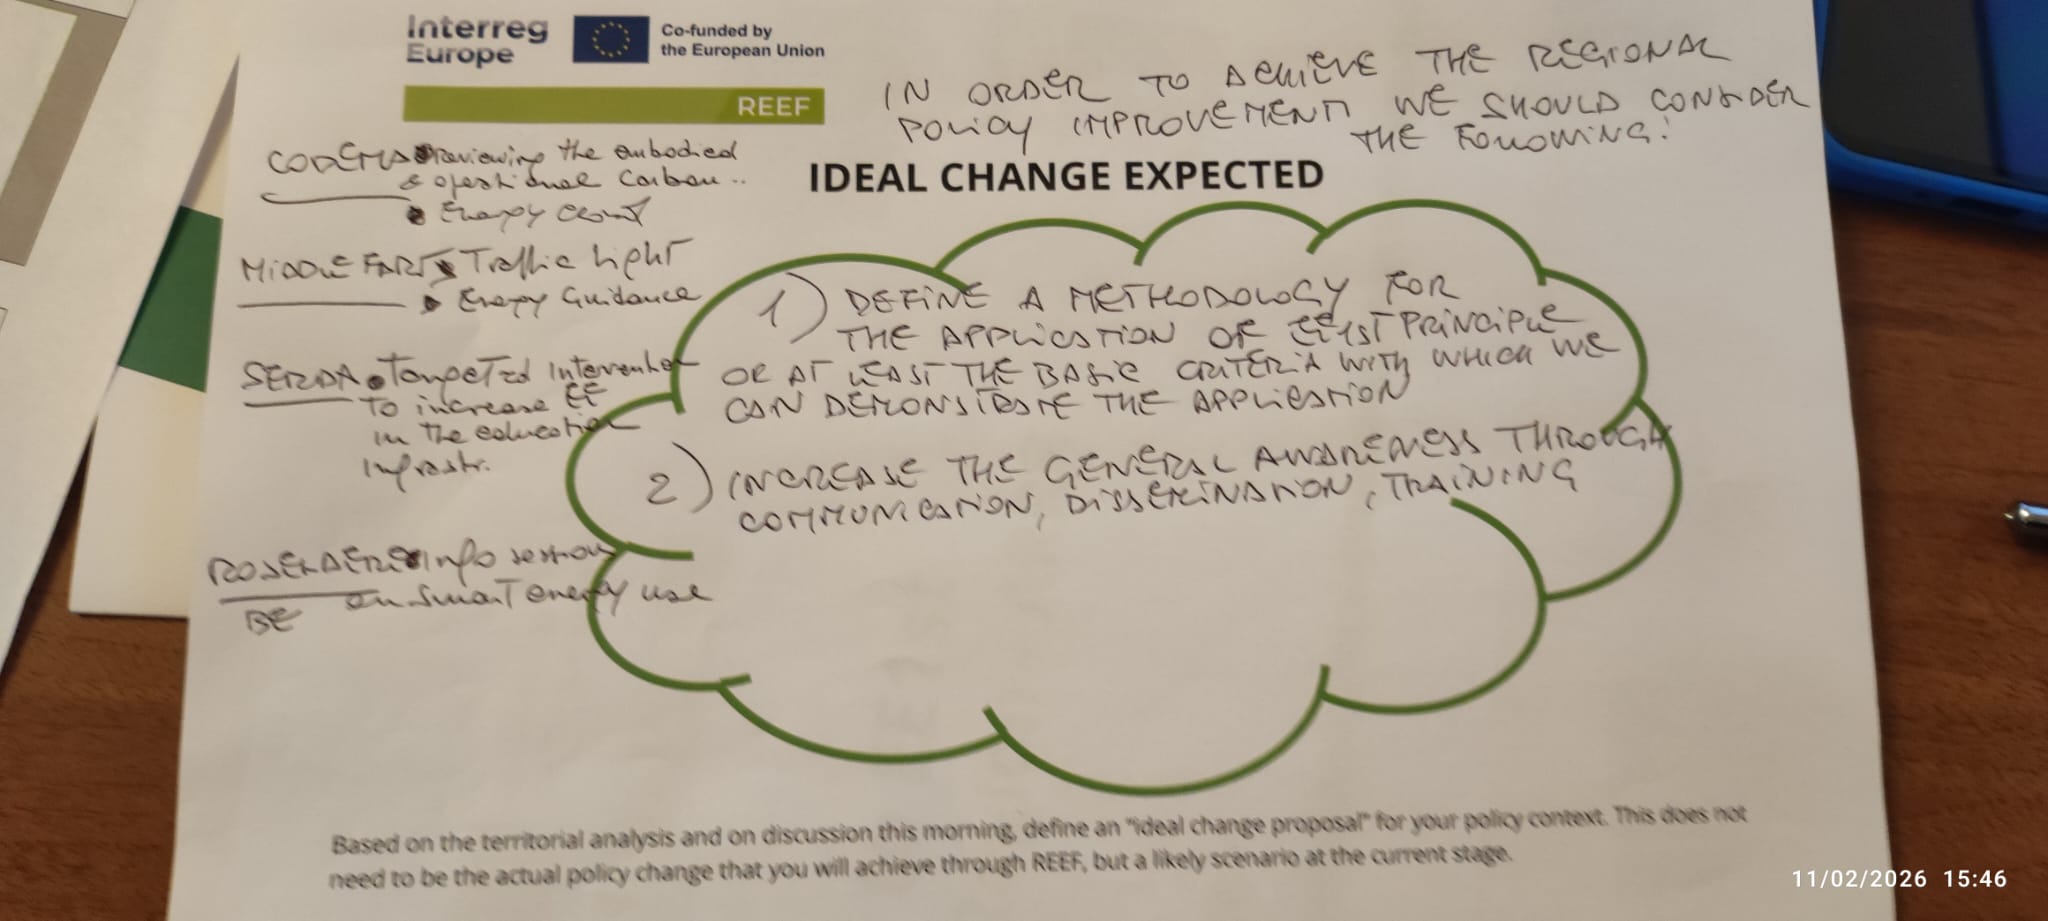 Interreg
Europe
Co-funded by
the European Union
REEF
IN ORDER TO ACHIEVE THE REGIONAL
POLICY IMPROVEMENT WE SHOULD CONSIDER
THE FOLLOWING:
IDEAL CHANGE EXPECTED
CODEMA reviewing the embodied
& opertional carbon..
Energy
MIDDLE FART Traffic light
Energy Guidance
SERDA Targeted Intervention
to increase EE
in the education
infrastr.
info session
BE on smart energy use
1) DEFINE A METHODOLOGY FOR
THE APPLICATION OF EE1ST PRINCIPLE
OR AT LEAST THE BASIC CRITERIA WITH WHICH WE
CAN DEMONSTRATE THE APPLICATION
2) INCREASE THE GENERAL AWARENESS THROUGH
COMMUNICATION, DISSEMINATION, TRAINING
Based on the territorial analysis and on discussion this morning, define an "ideal change proposal" for your policy context. This does not
need to be the actual policy change that you will achieve through REEF, but a likely scenario at the current stage.
11/02/2026 15:46